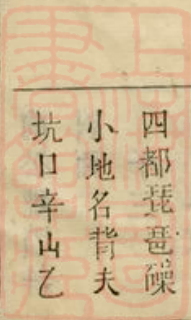 四都琵琶磜
小地名背夫
坑口辛山乙